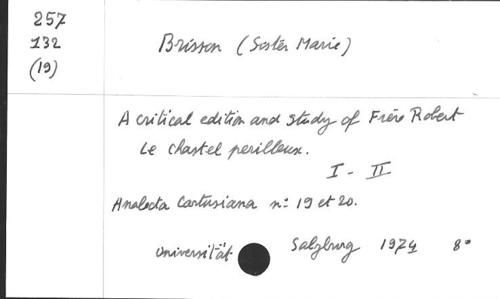 257
132
(19)
Brisson (Soster Marie)
A critical edition and study of Frère Robert
Le chastel perilleux.
I - II
Analecta Cartusiana n: 19 et 20.
Universität Salzburg 1974 8°